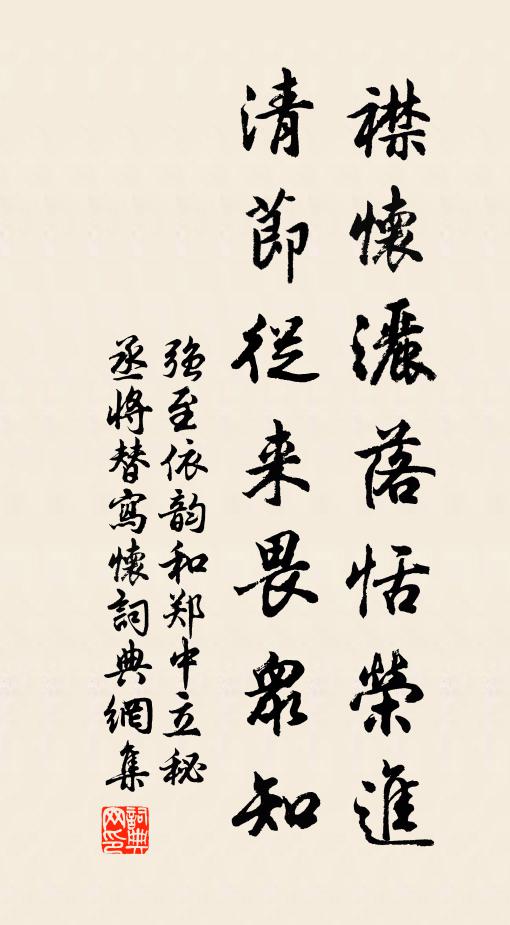 襟懷灑落恬榮進
清節從来畏眾知
強至依韵和郑中立秘
丞將替寫懷詞典網集
詞典网印